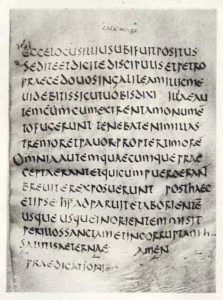 ECCE LOCUS ILLIUS UBI FUIT POSITUS
SED ITE ET DICITE DISCIPULIS ET PETRO
PRAECEDO UOS IN GALILEAM ILLIC ME
UIDEBITIS SICUT UOBIS DIXI ILLAE AU
TEM CUM
TO FUGERUNT TENEBAT ENIM ILLAS
TREMOR ET PAUOR PROPTER TIMORE
OMNIA AUTEM QUAECUMQUE PRAE
CEPTA ERANT ET QUI CUM PUERO ERAN
BREUITER EXPOSUERUNT POSTHAEC
ET IPSE ADPARUIT ET AB ORIENTE
USQUE USQUE IN ORIENTEM MISIT
PER ILLOS SANCTAM ET INCORRUPTAM
SALUTIS AETERNAE AMEN